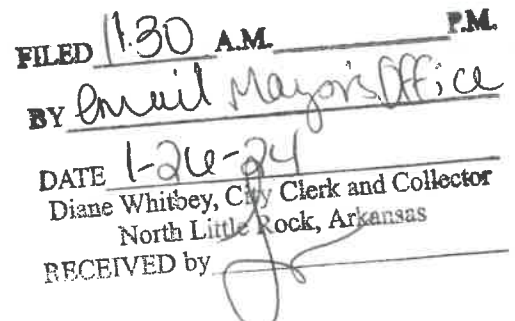 FILED 11:30 A.M. P.M.
BY email Mayor's Office
DATE 1-26-24
Diane Whitbey, City Clerk and Collector
North Little Rock, Arkansas
RECEIVED by